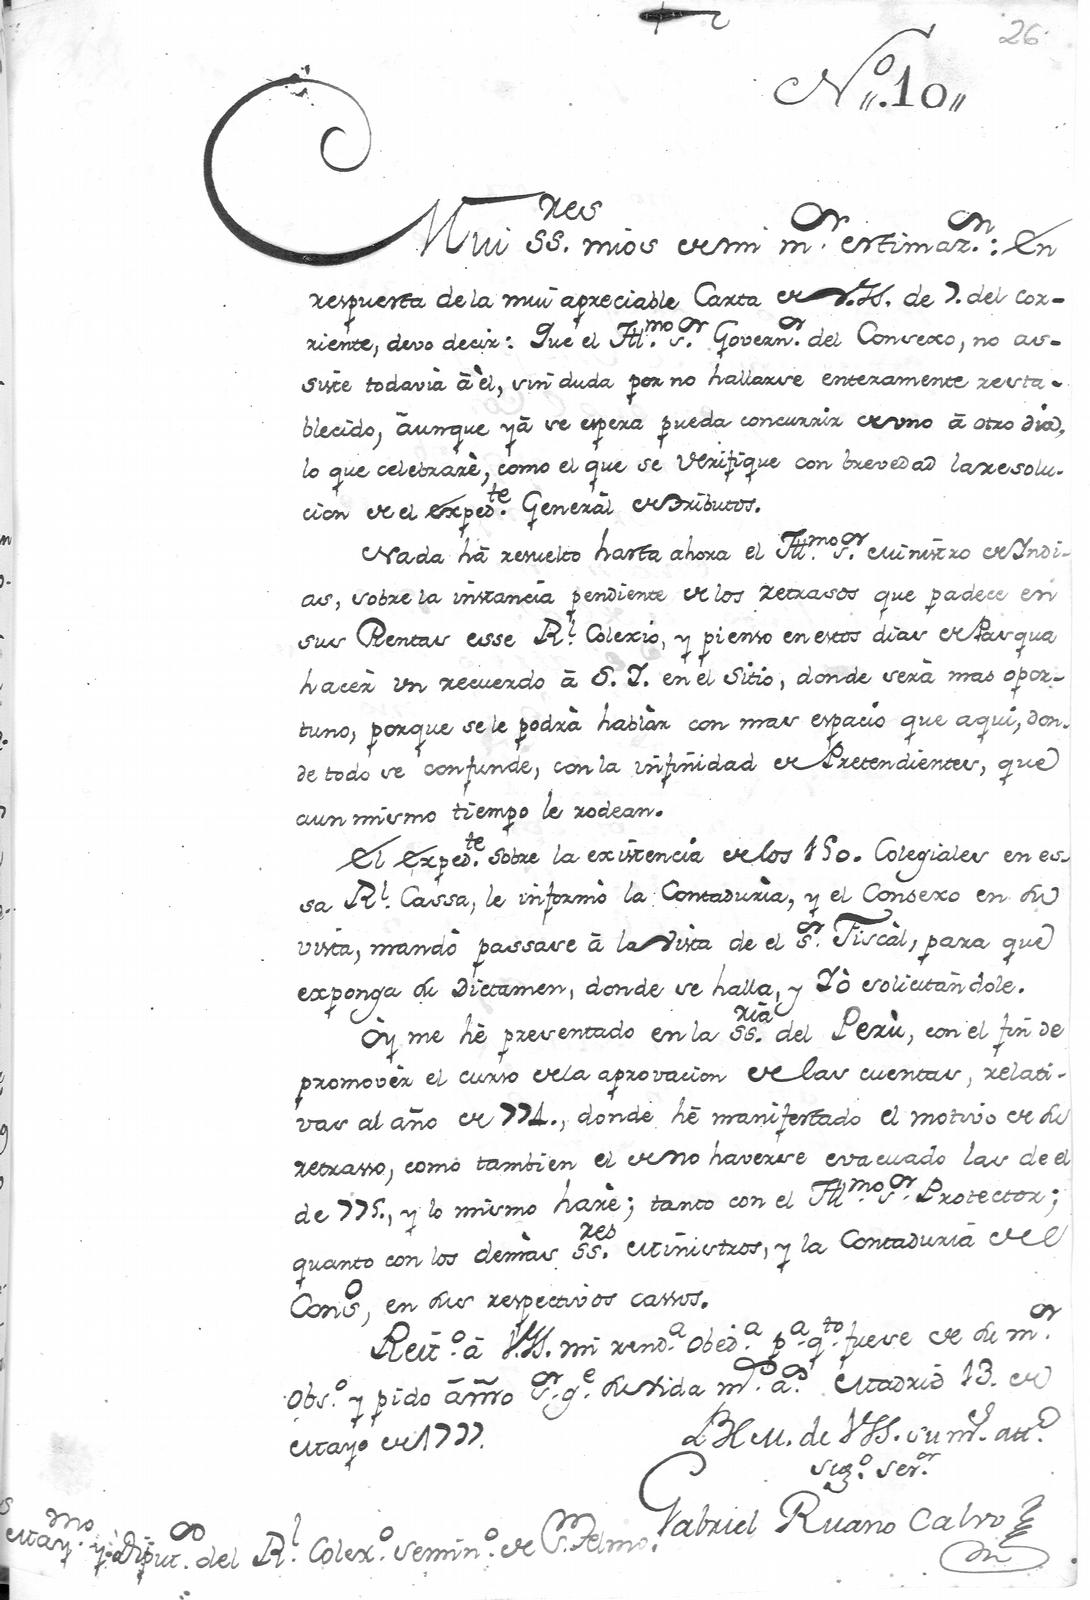 26
Nº. 10
Mui SS.res mios de mi m.or estimaz.n: En
respuesta de la mui apreciable Carta de V.SS. de 7. del cor-
riente, devo decir: Que el Ill.mo S.or Govern.or del Consexo, no as-
siste todavia à èl, sin duda por no hallarse enteramente resta-
blecido, àunque yà se espera pueda concurrir de uno à otro dia,
lo que celebrarè, como el que se verifique con brevedad la resolu-
cion de el exped.te Generàl de Tributos.
Nada hà resuelto hasta ahora el Ill.mo S.or Ministro de Indi-
as, sobre la instancia pendiente de los retrasos que padece en
sus Rentas esse R.l Colexio, y pienso en estos dias de Pasqua
hacèr un recuerdo à S. I. en el Sitio, donde serà mas opor-
tuno, porque se le podrà hablàr con mas espacio que aqui, don-
de todo se confunde, con la infinidad de Pretendientes, que
a un mismo tiempo le rodean.
El exped.te sobre la existencia de los 150. Colegiales en es-
sa R.l Cassa, le informò la Contadurìa, y el Consexo en su
vista, mandò passase à la vista de el S.or Fiscàl, para que
exponga su Dictamen, donde se halla, y Yò solicitandole.
Oy me hè presentado en la SS.ria del Perù, con el fin de
promovèr el curso de la aprovacion de las cuentas, relati-
vas al año de 774., donde hè manifestado el motivo de su
retrasso, como tambien el de no haverse evacuado las de el
de 775., y lo mismo harè; tanto con el Ill.mo S.or Protector;
quanto con los demàs SS.res Ministros, y la Contaduria de el
Cons.o, en sus respectivos cassos.
Reit.o à V.SS. mi rend.a obed.a p.a q.to fuese de su m.or
obs.o y pido à nr̃o S.or g.e su vida m.s a.s Madrid 13. de
Mayo de 1777.
B L M. de V.SS. su m.s att.o
seg.o ser.or
Gabriel Ruano Calvo
S.res May.mo y Diput.os del R.l Colex.o Semin.o de S.n Telmo.